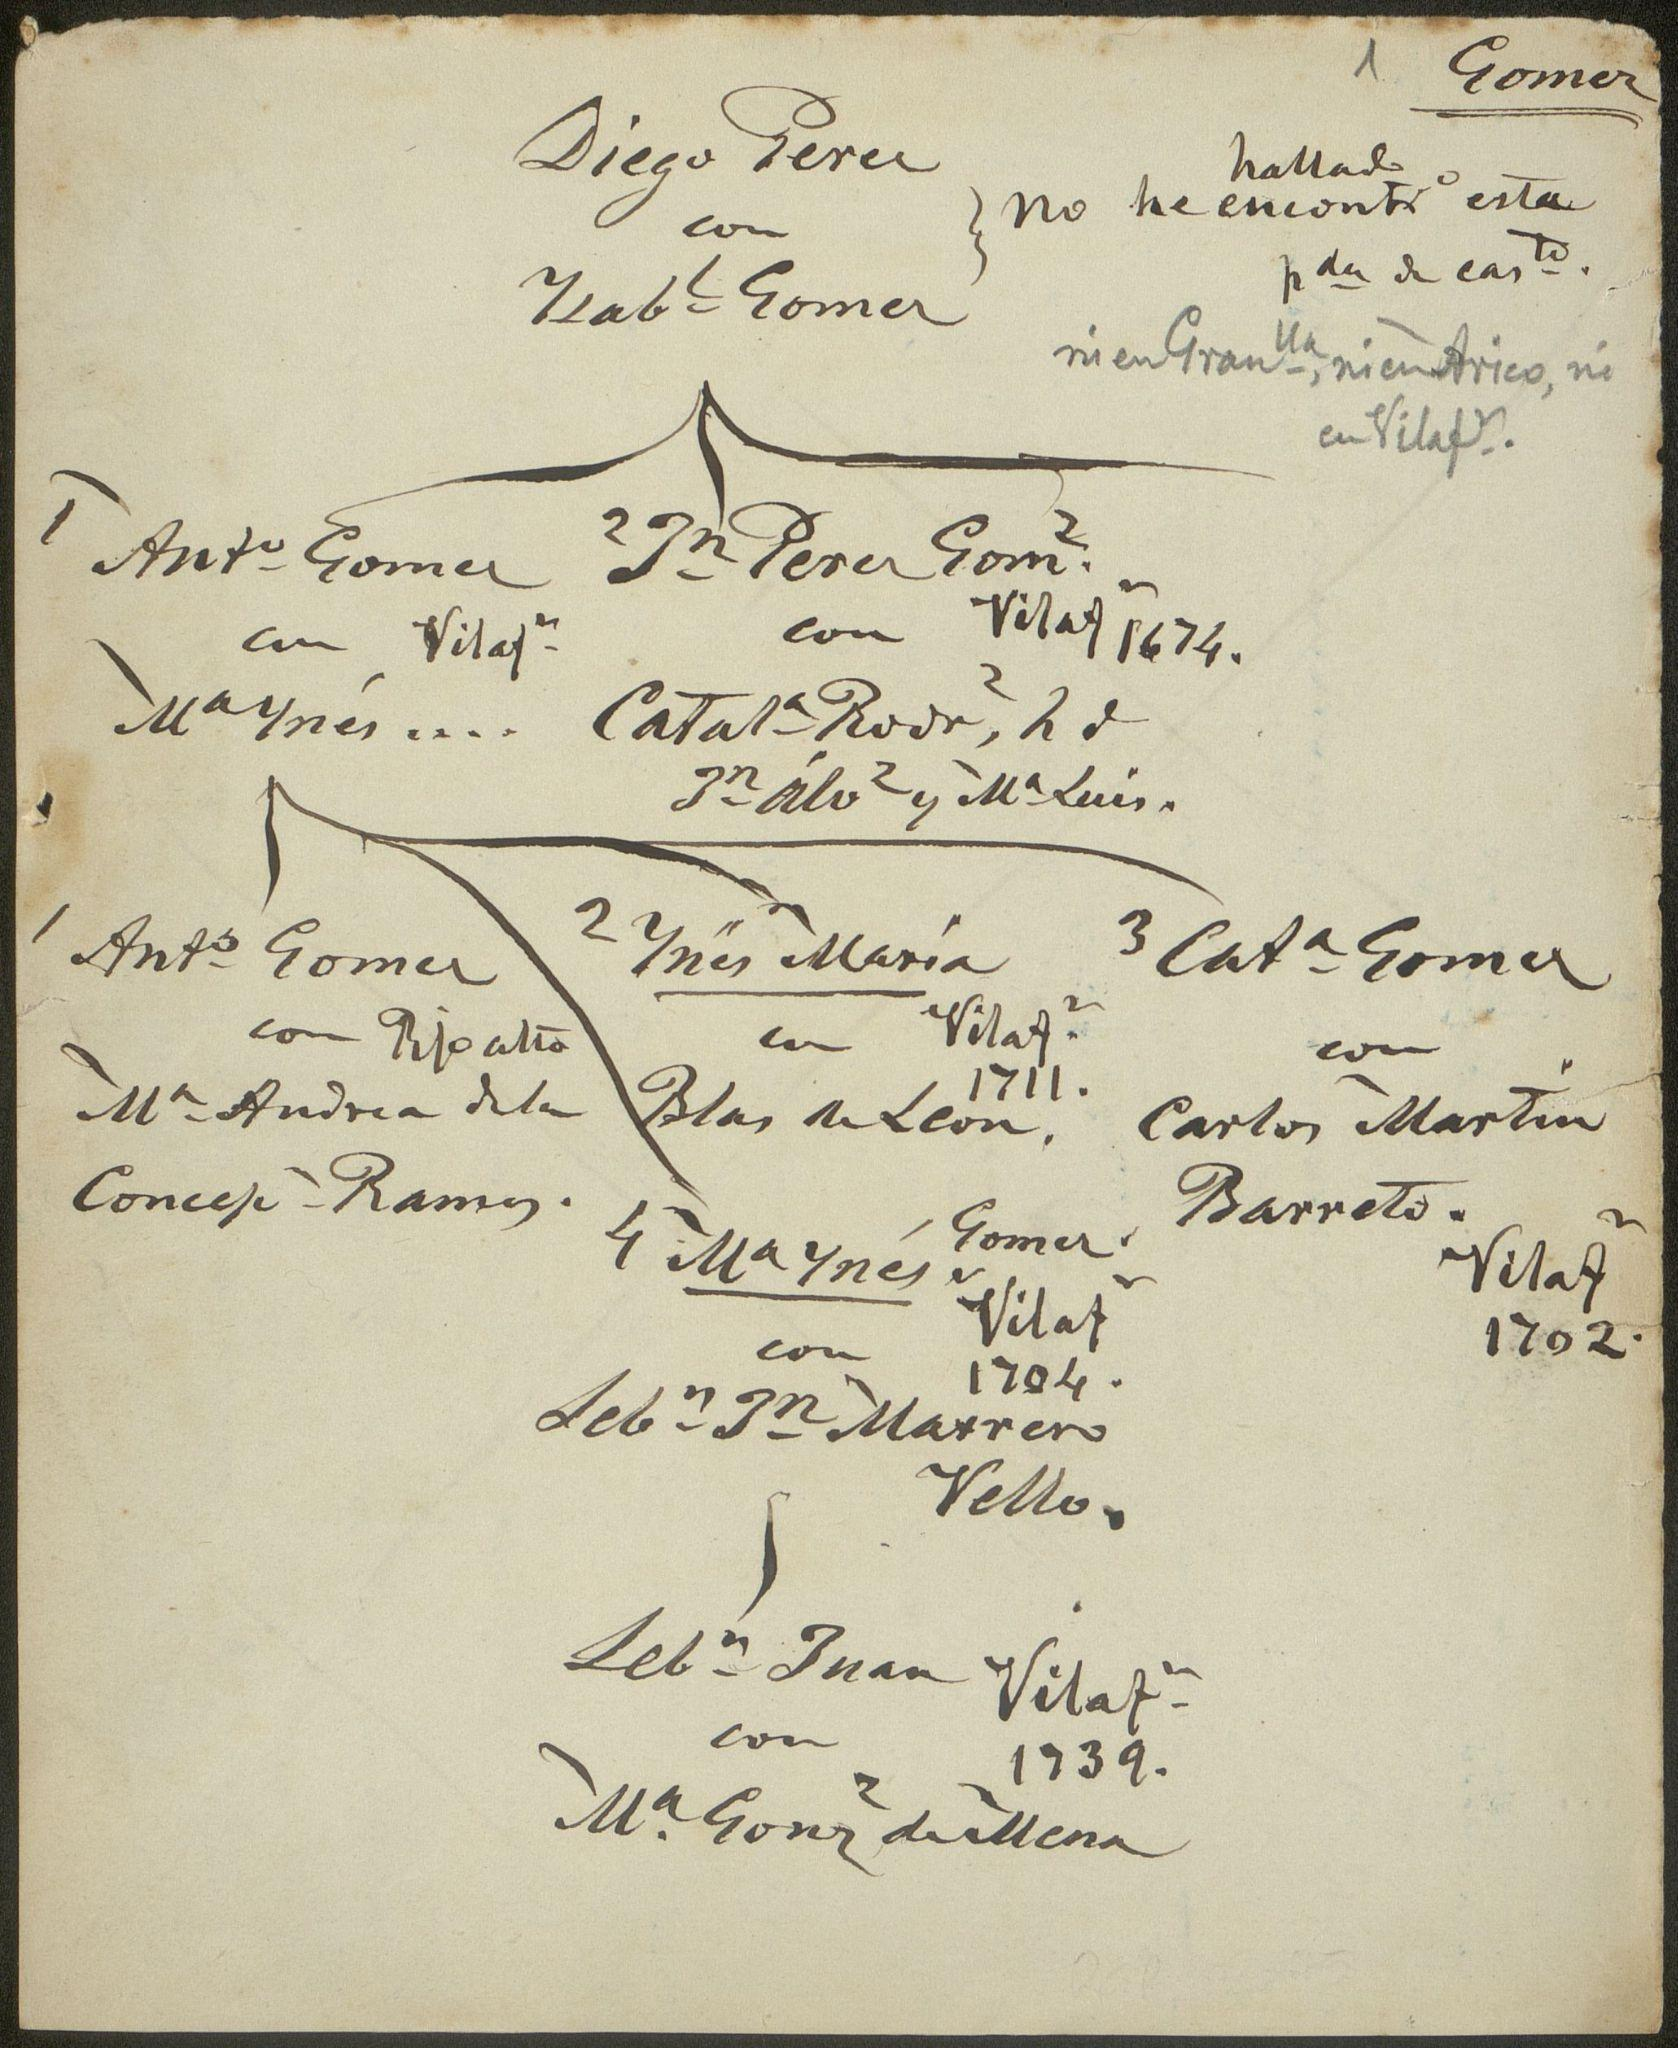 1 Gomez
Diego Perez
con
Ysab.l Gomez
hallado
No he encontr.o esta
p.da de cas.to.
ni en Gran.lla, ni en Arico, ni
en Vilaf.r.
1 Ant.o Gomez
con Vilaf.r
M.a Ynés ....
2 J.n Perez Gom.z
con Vilaf.r 1674.
Catal.a Rodr.z, h d
J.n Álv.z y M.a Luis.
1 Ant.o Gomez
con Rjo alto
M.a Andrea dela
Concep.n Ramos.
2 Ynés María
con Vilaf.r
1711.
Blas de León.
3 Cat.a Gomez
con
Carlos Martin
Barreto.
Vilaf.r
1702.
4 M.a Ynés Gomez.
Vilaf.r
con 1704.
Seb.n J.n Marrero
Vello.
Seb.n Juan Vilaf.r
con 1739.
M.a Gonz.z de Mena